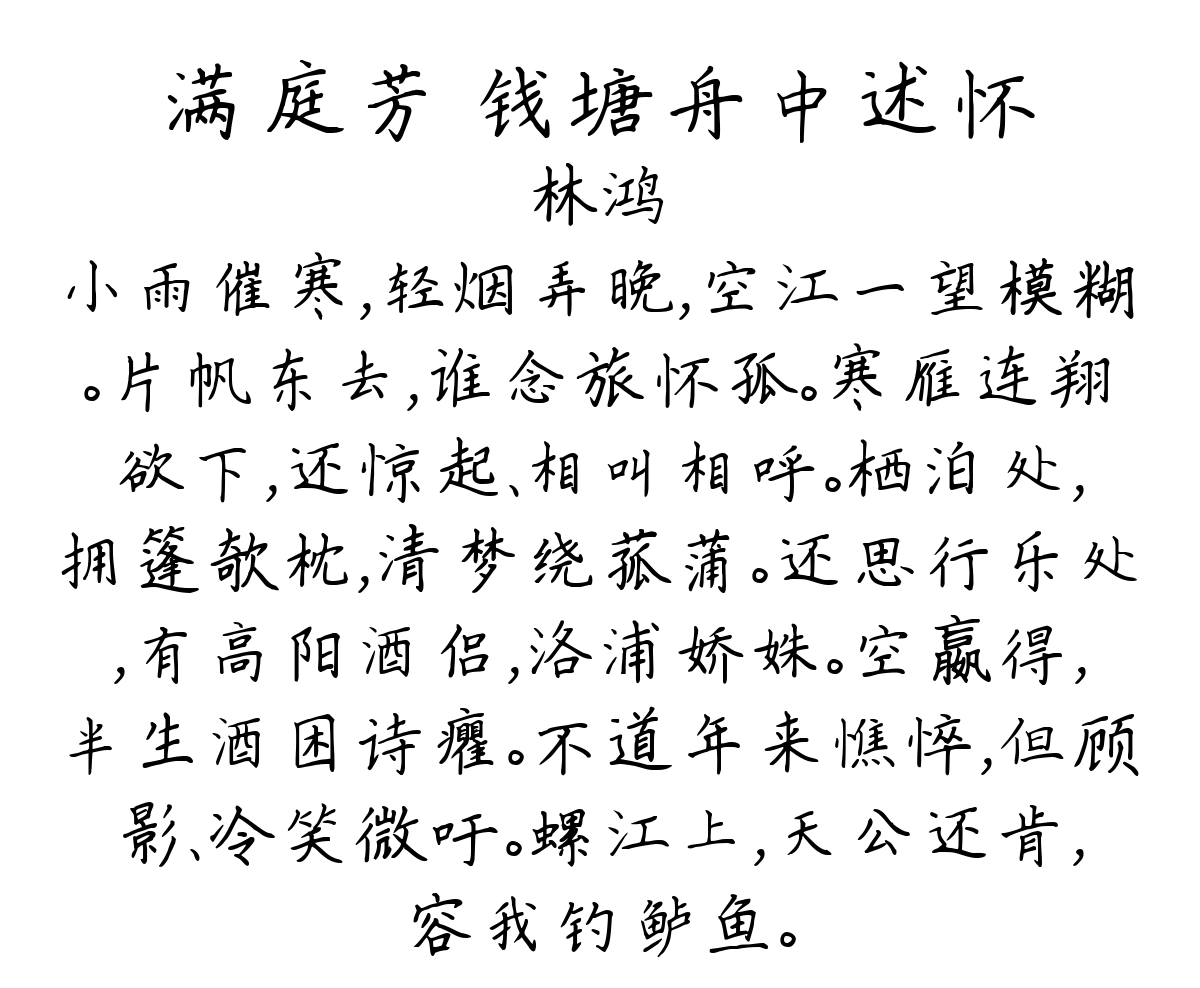 满庭芳 钱塘舟中述怀
林鸿
小雨催寒,轻烟弄晚,空江一望模糊
。片帆东去,谁念旅怀孤。寒雁连翔
欲下,还惊起、相叫相呼。栖泊处,
拥篷欹枕,清梦绕菰蒲。还思行乐处
,有高阳酒侣,洛浦娇姝。空赢得,
半生酒困诗癯。不道年来憔悴,但顾
影、冷笑微吁。螺江上,天公还肯,
容我钓鲈鱼。